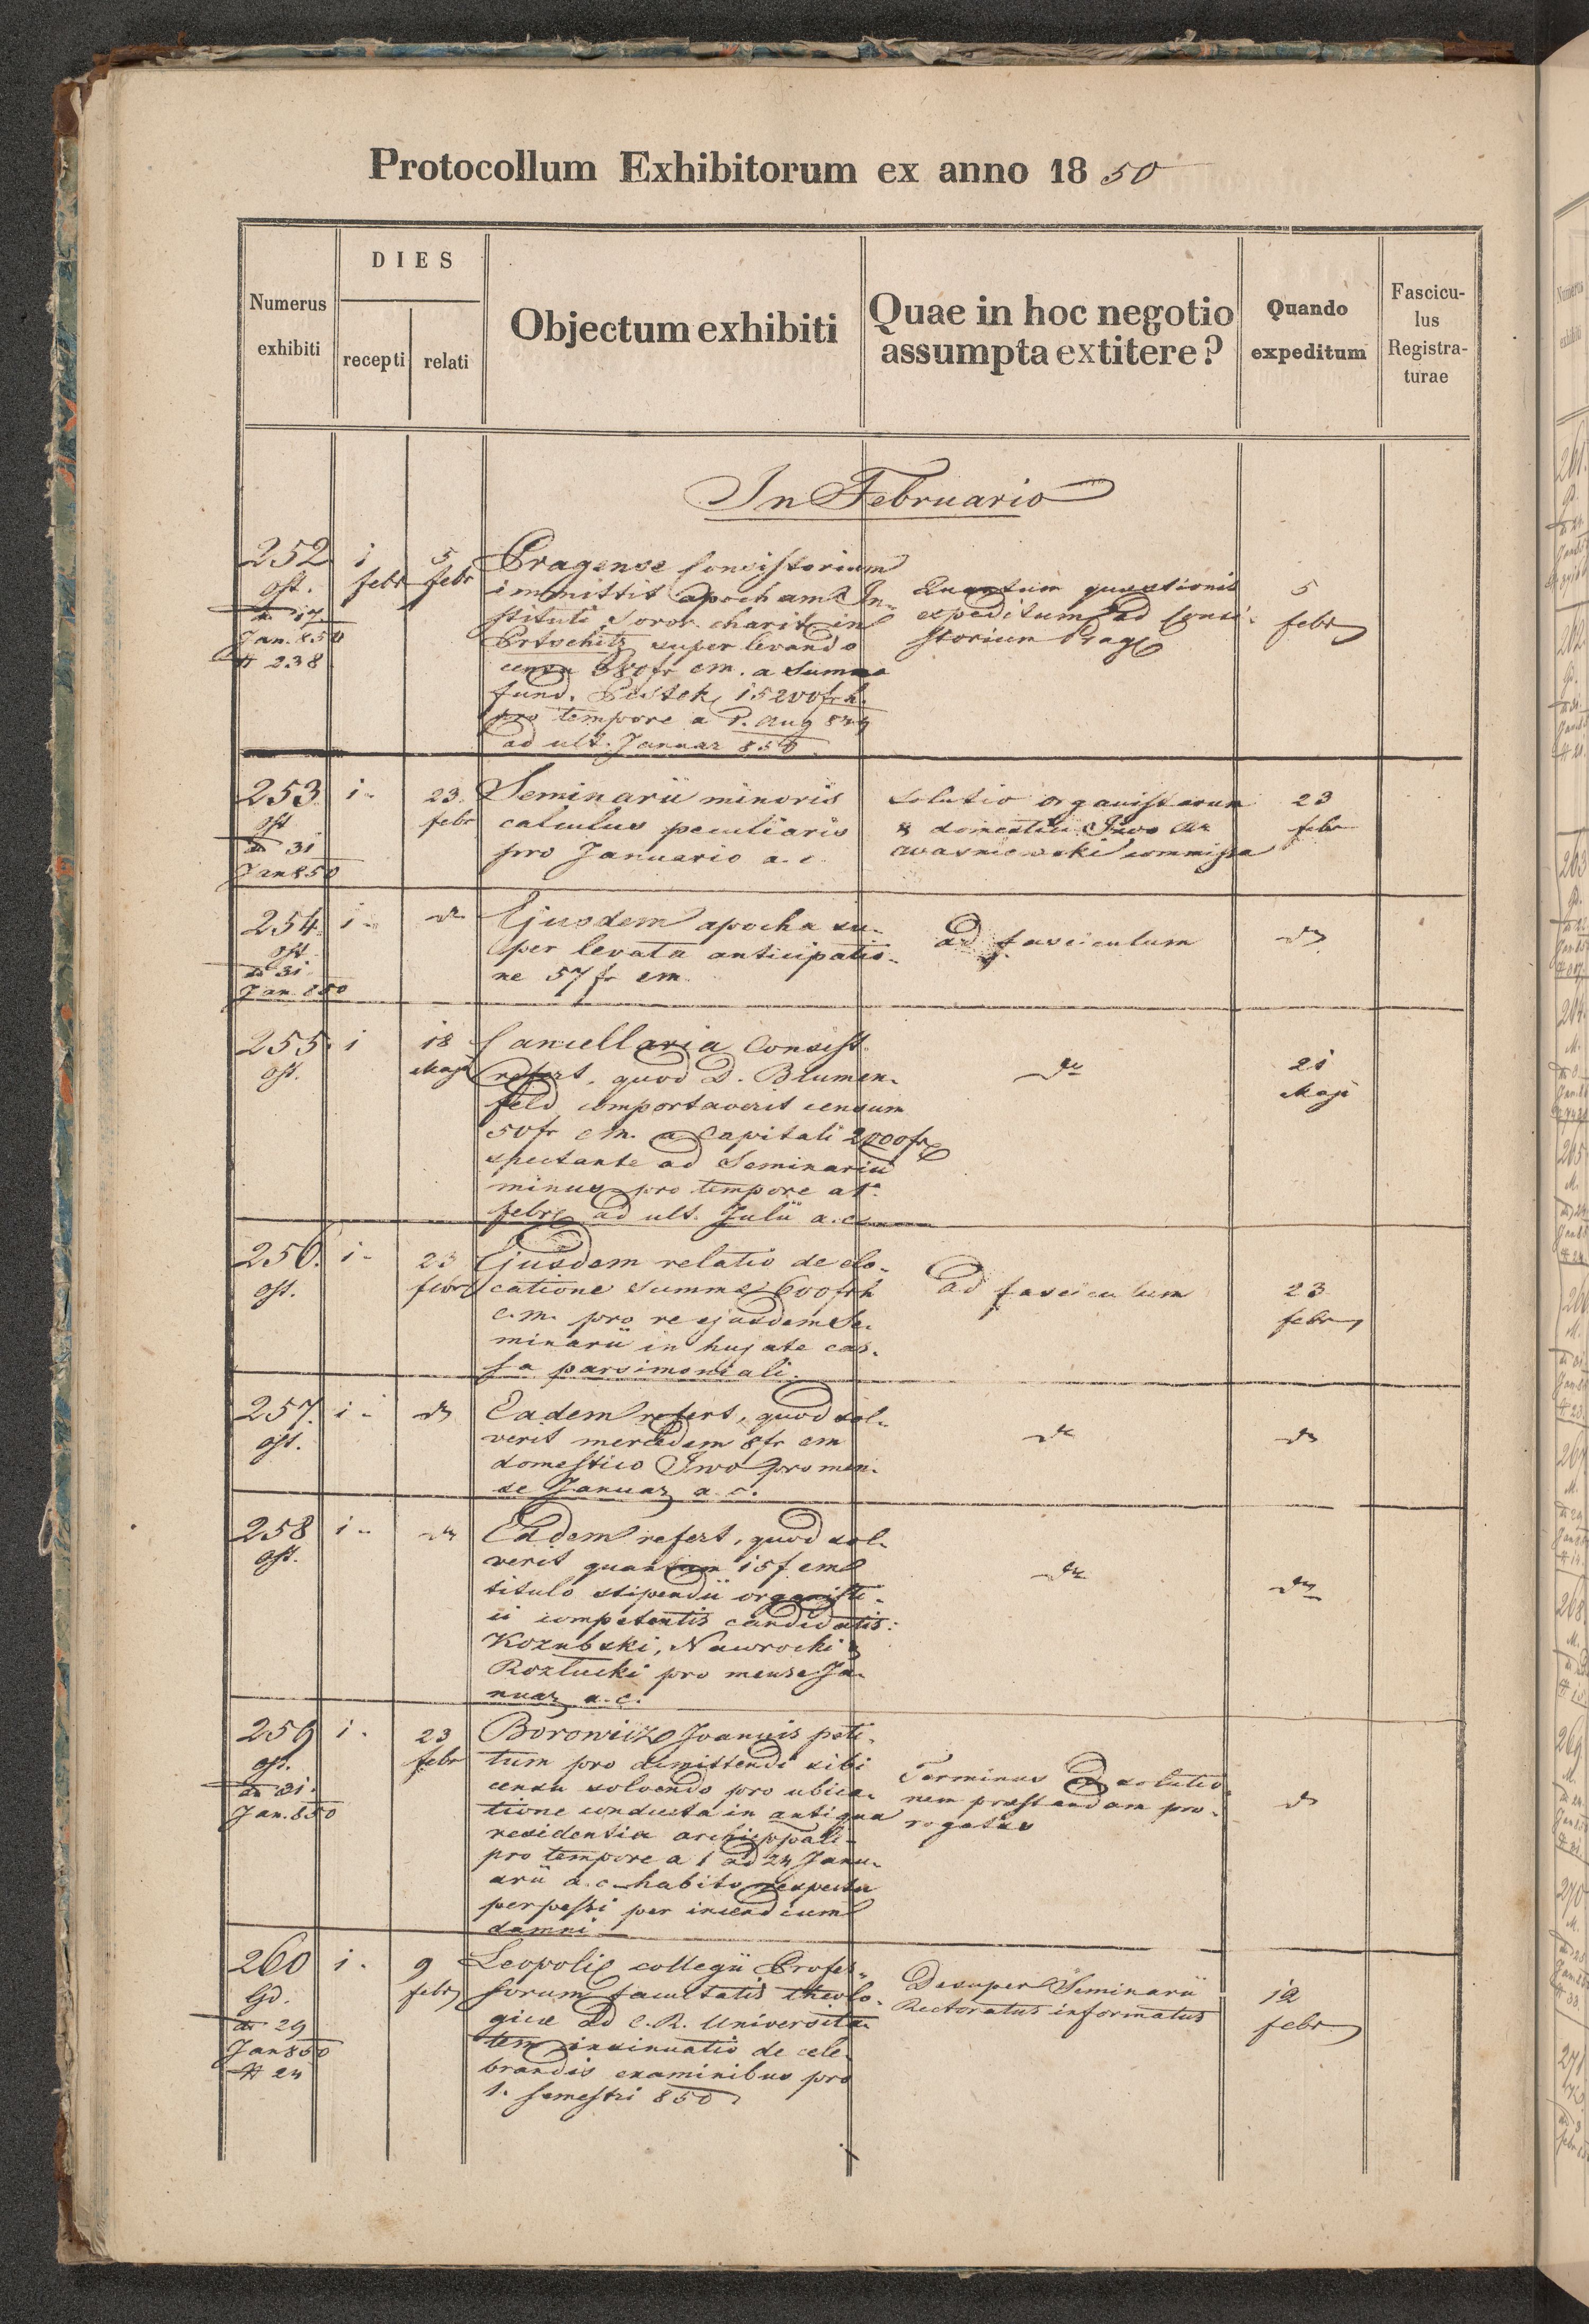 Protocollum Exhibitorum ex anno 1850
Numerus exhibiti
DIES
recepti
relati
Objectum exhibiti
Quae in hoc negotio
assumpta extitere?
Quando
expeditum
Fascicu-
lus
Registra-
turae
In Februario
252
ost.
17
Jan. 850
# 238
1
febr
5
febr
Pragense Consistorium
immittit apocham In-
stituti Soror. charit. in
super levando
censu 380 fr cm. a Summa
fund. 15200 fr.
pro tempore a 1. Aug 849
ad ult. Januar 850
Quantum quaestionis
expeditum ad Consi-
storium Prag
5
febr
253
ost
dto 31
Jan 850
1 -
23
febr
Seminarii minoris
calculus peculiaris
pro Januario a. c.
Solutio organistarum
& domestici Iwo
commissa
23
febr
254
ost
dto 31
Jan. 850
1 -
do
Ejusdem apocha su-
per levata anticipatio-
ne 57 fr cm
ad fasciculum
do
255
ost.
1
18
Maji
Cancellaria Consist.
refert, quod D. Blumen-
feld comportaverit censum
50 fr cm. a Capitali 2000 fr
spectante ad Seminariu
minus pro tempore a 1a
febr ad ult. Julii a. c.
do
21
Maji
256
ost.
1 -
23
febr
Ejusdem relatio de elo-
catione Summa 600 frh
c. m. pro re ejusdem Se-
minarii in hujate cas-
sa parsimoniali.
ad fasciculum
23
febr
257
ost.
1 -
do
Eadem refert, quod sol-
verit mercedem 8 fr cm
domestico Iwo pro men-
se Januar a. c.
do
do
258
ost.
1 -
do
Eadem refert, quod sol-
verit quantum 15 f. cm
titulo stipendii organisti-
ci competentis candidatis:
Kozubski, Nawrocki &
Rozlucki pro mense Ja-
nuar a. c.
do
do
259
ost.
dto 31.
Jan. 850
1 -
23
febr
Borowicz Joannis peti-
tum pro dimittendo sibi
censu solvendo pro ubica-
tione conducta in antiqua
residentia archieppali
pro tempore a 1 ad 24 Janu-
arii a. c. habito respectu
perpessi per incendium
damni
Terminus ad solutio-
nem praestandam pro-
rogatus
do
260
Gd.
dto 29
Jan 850
# 24
1 -
9
febr
Leopolis collegii Profes-
sorum facultatis theolo-
gicae ad C. R. Universita-
tem insinuatio de cele-
brandis examinibus pro
1. semestri 850
Desuper Seminarii
Rectoratus informatus
12
febr